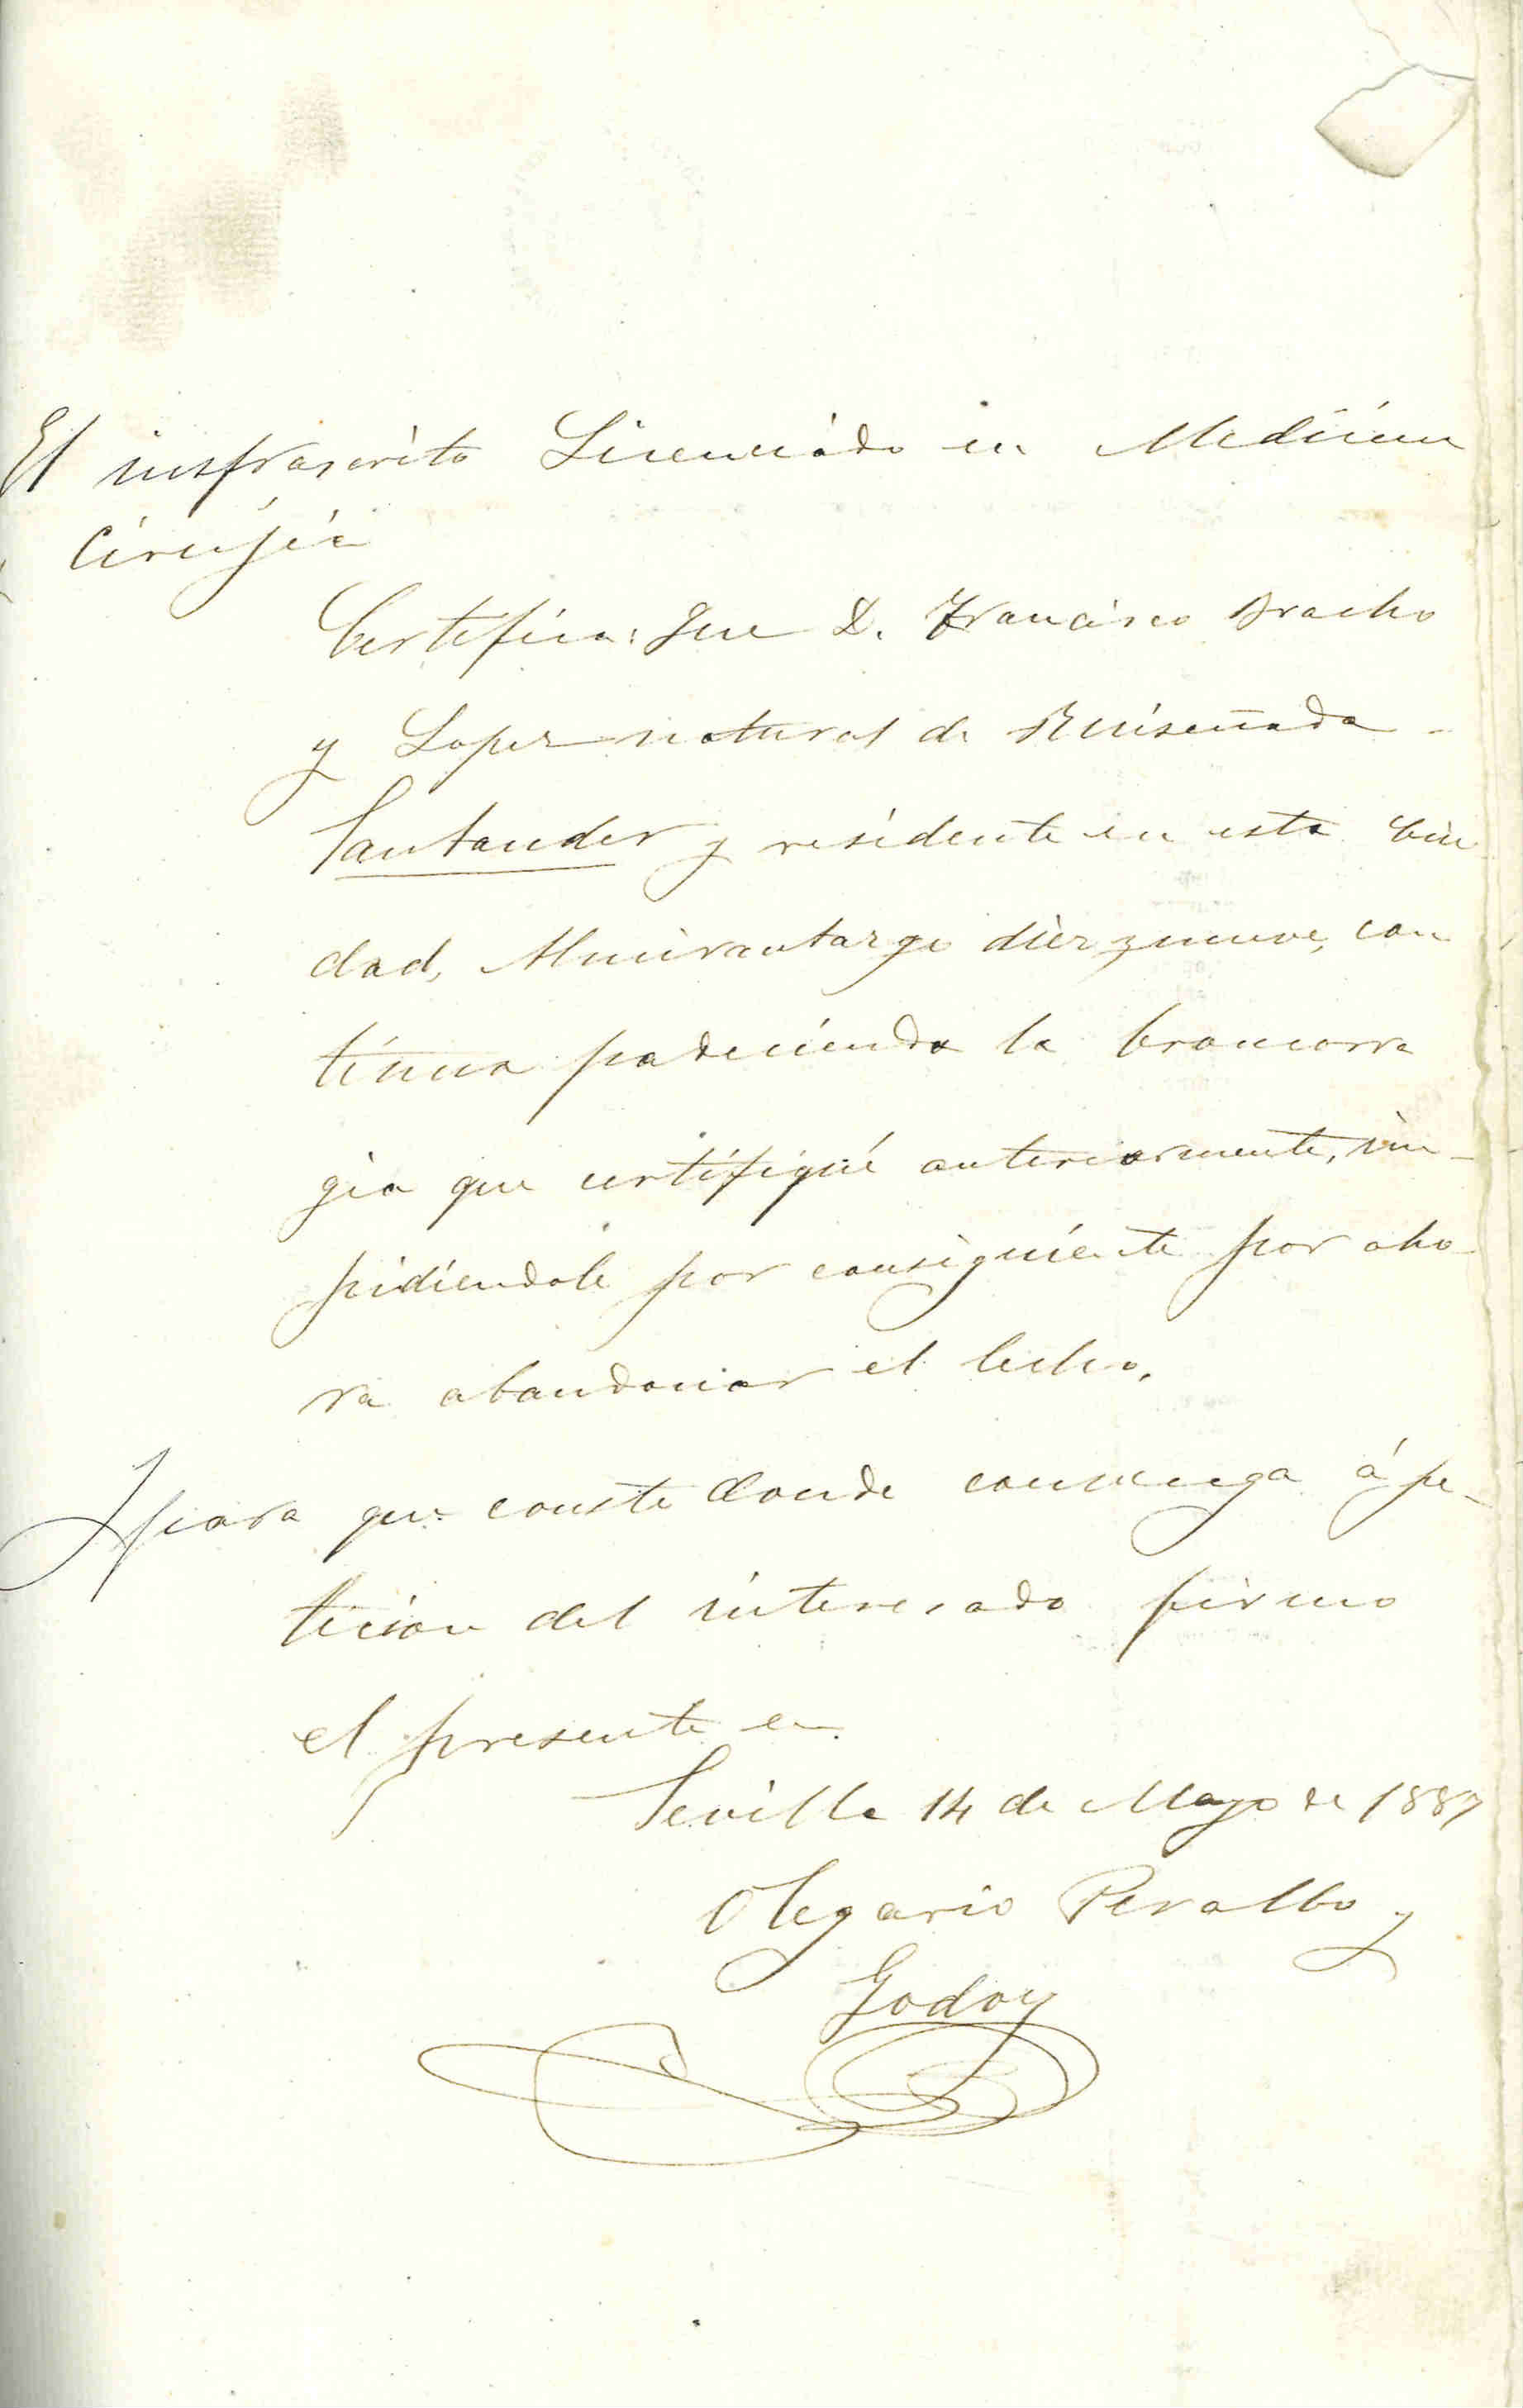 El insfrascrito Licenciado en Medicina
y Cirujia
Certifica: Que D. Francisco Bracho
y Lopez natural de Ruiseñada -
Santander y residente en esta Ciu
dad, Almirantazgo diez y nueve, con
tinua padeciendo la broncorra
gia que certifiqué anteriormente, im-
pidiendole por consiguiente por aho-
ra abandonar el lecho.
Y para que conste donde convenga á pe-
ticion del interesado firmo
el presente en
Sevilla 14 de Mayo de 1887
Olegario Peralbo y
Godoy